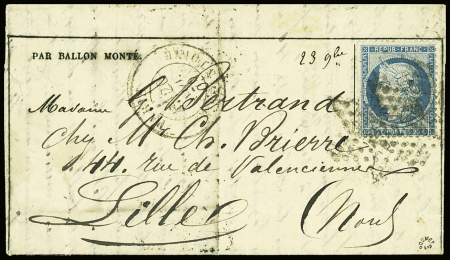 REPUB. FRANC.
PAR BALLON MONTÉ.
23 9bre
Madame Bertrand
Chez Mr Ch. Brierre
44, rue de Valenciennes
Lille (Nord)